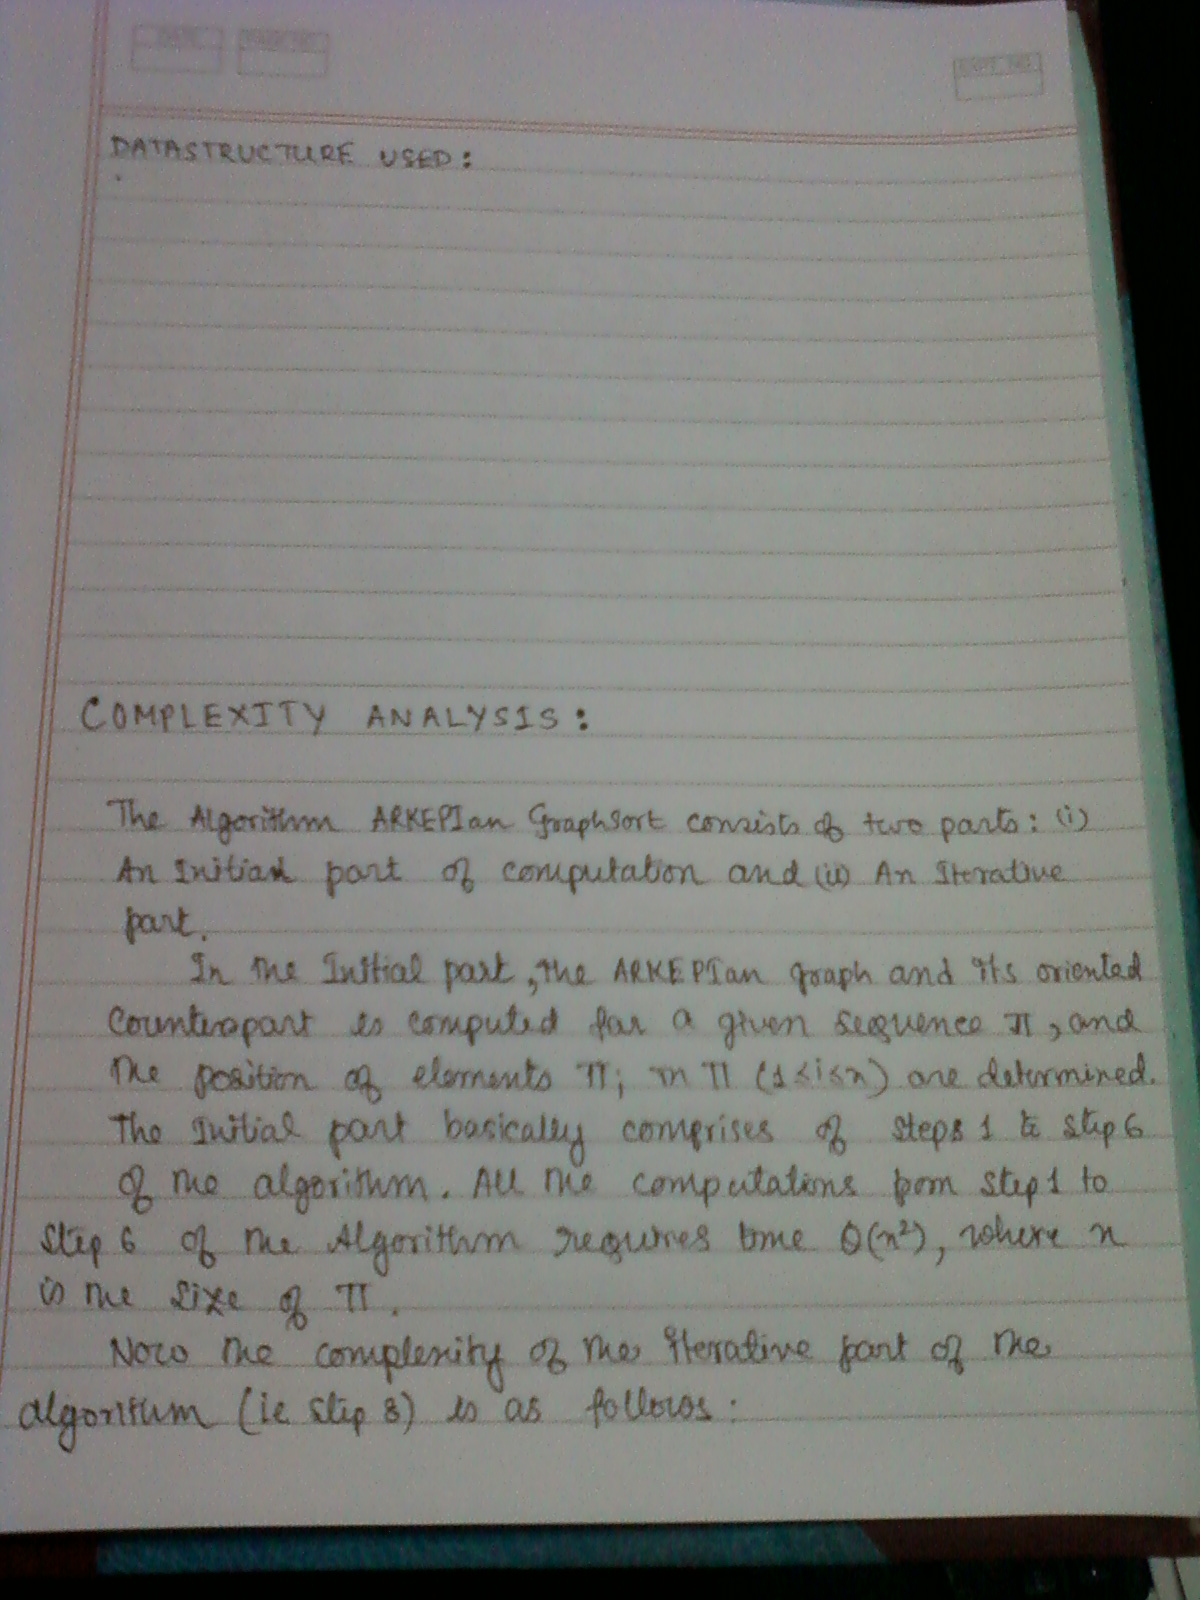 DATE
EXPT. NO.
DATASTRUCTURE USED:
COMPLEXITY ANALYSIS:
The Algorithm ARKEPIan GraphSort consists of two parts: (i)
An Initial part of computation and (ii) An Iterative
part.
In the Initial part, the ARKEPIan graph and its oriented
Counterpart is computed for a given sequence π, and
the position of elements πi in π (1≤i≤n) are determined.
The Initial part basically comprises of Steps 1 to Step 6
of the algorithm. All the computations from step 1 to
Step 6 of the Algorithm requires time O(n²), where n
is the size of π.
Now the complexity of the iterative part of the
algorithm (ie step 8) is as follows: